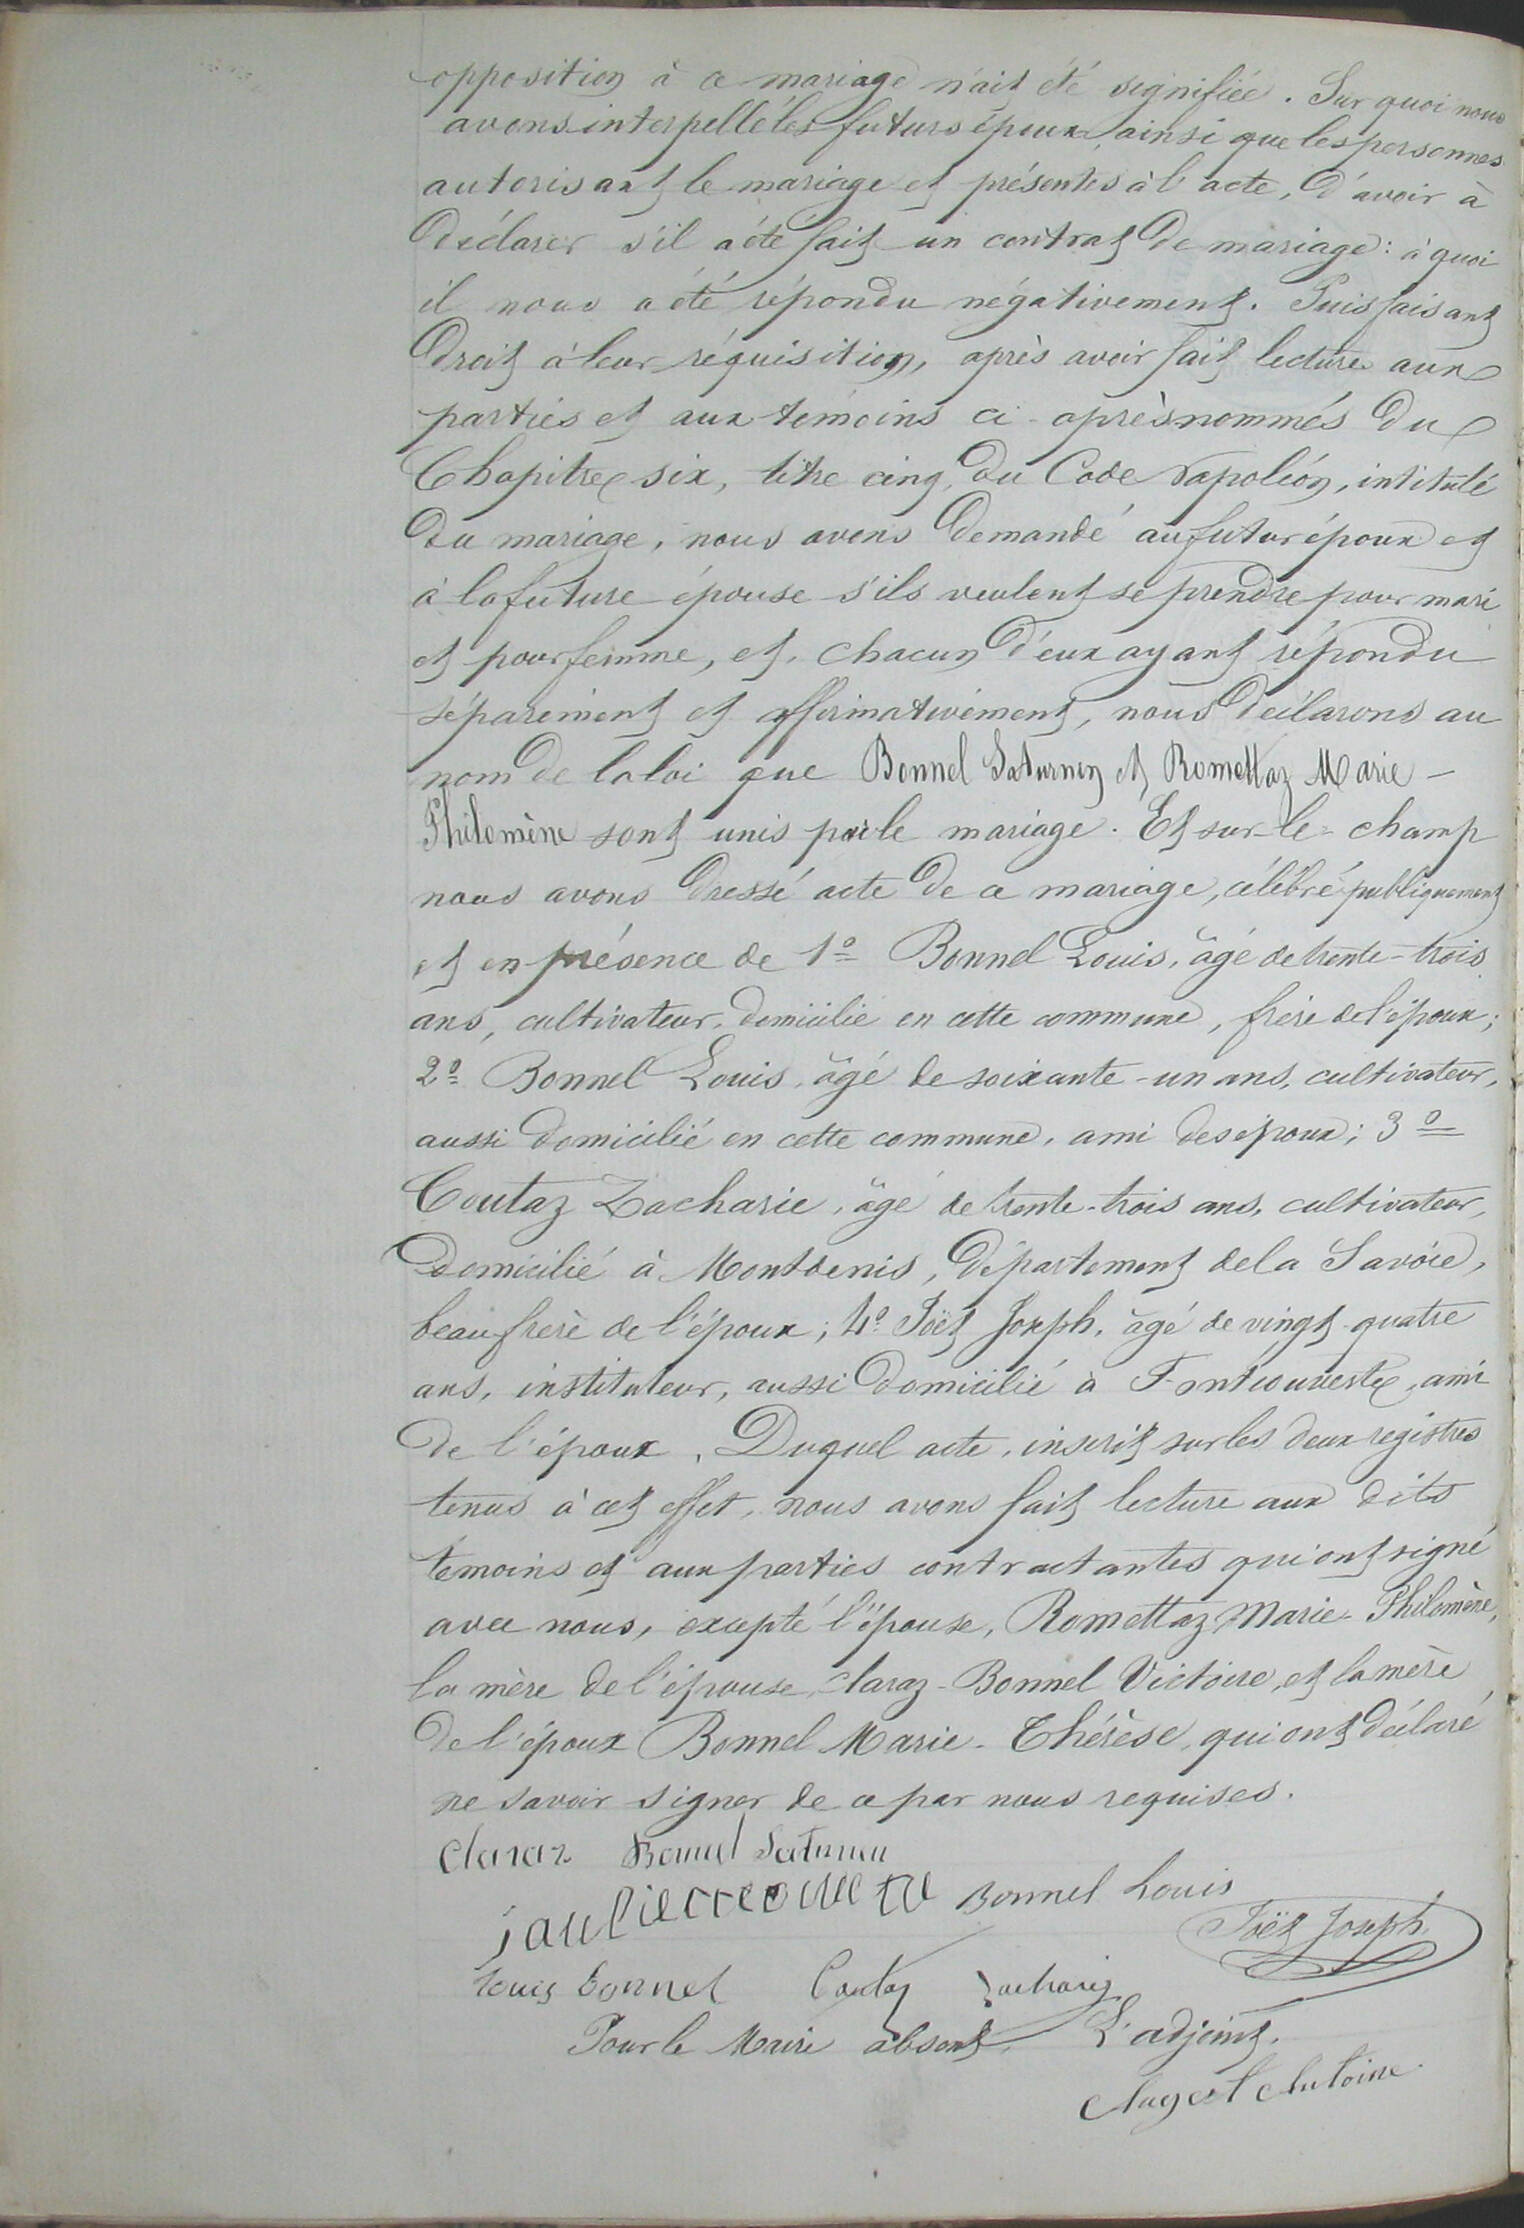 opposition à ce mariage n'ait été signifiée. Sur quoi nous
avons interpellé les futurs époux, ainsi que les personnes
autorisant le mariage et présentes à l'acte, d'avoir à
déclarer s'il a été fait un contrat de mariage: à quoi
il nous a été répondu négativement. Puis faisant
droit à leur réquisition, après avoir fait lecture aux
parties et aux témoins ci-après nommés du
Chapitre six, titre cinq, du Code Napoléon, intitulé
du mariage, nous avons demandé au futur époux et
à la future épouse s'ils veulent se prendre pour mari
et pour femme, et, chacun d'eux ayant répondu
séparément et affirmativement, nous déclarons au
nom de la loi que Bonnel Saturnin et Romettaz Marie-
Philomène sont unis par le mariage. Et sur-le-champ
nous avons dressé acte de ce mariage, célébré publiquement
et en présence de 1º Bonnel Louis, âgé de trente-trois
ans, cultivateur, domicilié en cette commune, frère de l'époux;
2º Bonnel Louis, âgé de soixante-un ans, cultivateur,
aussi domicilié en cette commune, ami des époux; 3º
Coutaz Zacharie, âgé de trente-trois ans, cultivateur,
domicilié à Montdenis, département de la Savoie,
beau frère de l'époux; 4º Joët Joseph, âgé de vingt-quatre
ans, instituteur, aussi domicilié à Fontcouverte, ami
de l'époux. Duquel acte, inscrit sur les deux registres
tenus à cet effet, nous avons fait lecture aux dits
témoins et aux parties contractantes qui ont signé
avec nous, excepté l'épouse, Romettaz Marie-Philomène,
la mère de l'épouse, Claraz-Bonnel Victoire, et la mère
de l'époux Bonnel Marie-Thérèse, qui ont déclaré
ne savoir signer de ce par nous requises.
Claraz Bonnel Saturnin
Bonnel Louis
Joët Joseph
Louis bonnel Coutaz Zacharie
Pour le Maire absent, L'adjoint,
Antoine